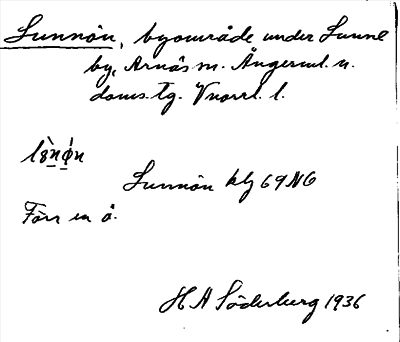 Sunnön, byområde under Sunne
by, Arnäs sn. Ångerml. n.
doms. tg. Vnorrl. l.
Sunnön kbl 69 NG
Förr en ö.
H A Söderberg 1936